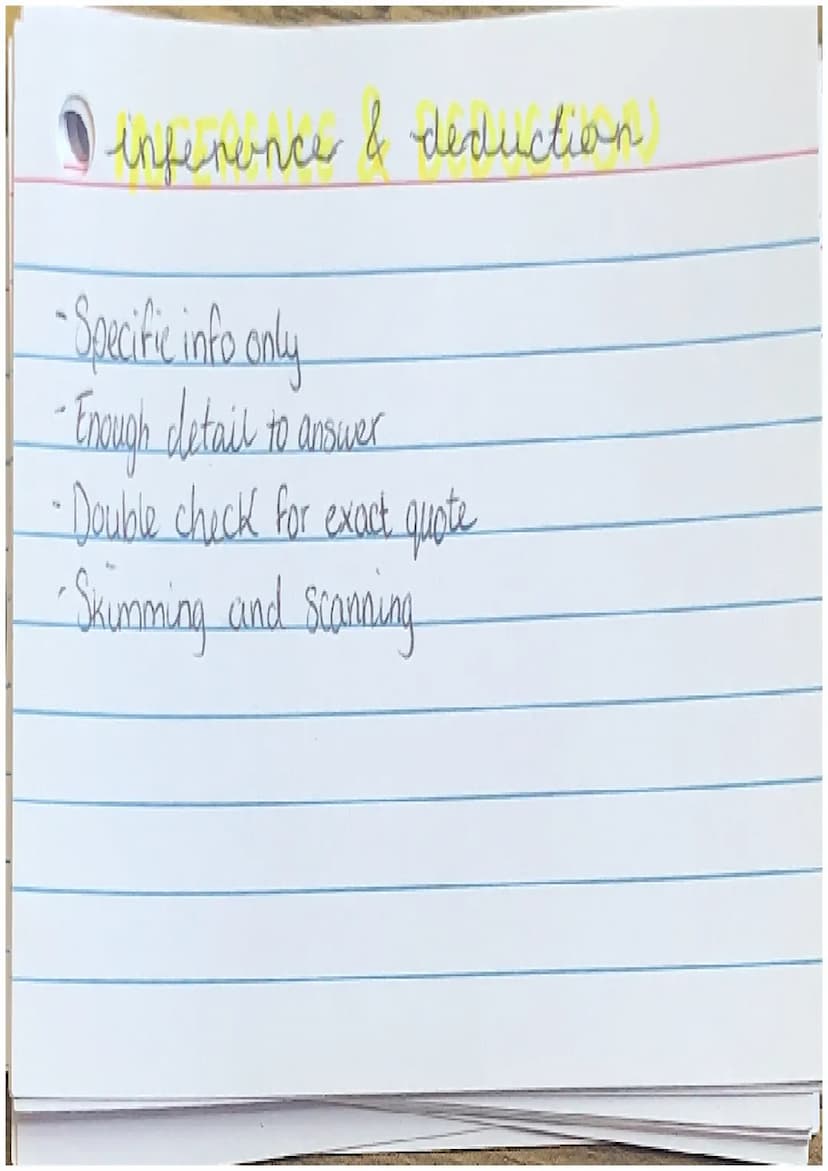 inference & deduction
INFERENCE & DEDUCTION
- Specific info only
- Enough detail to answer
- Double check for exact quote
- Skimming and scanning